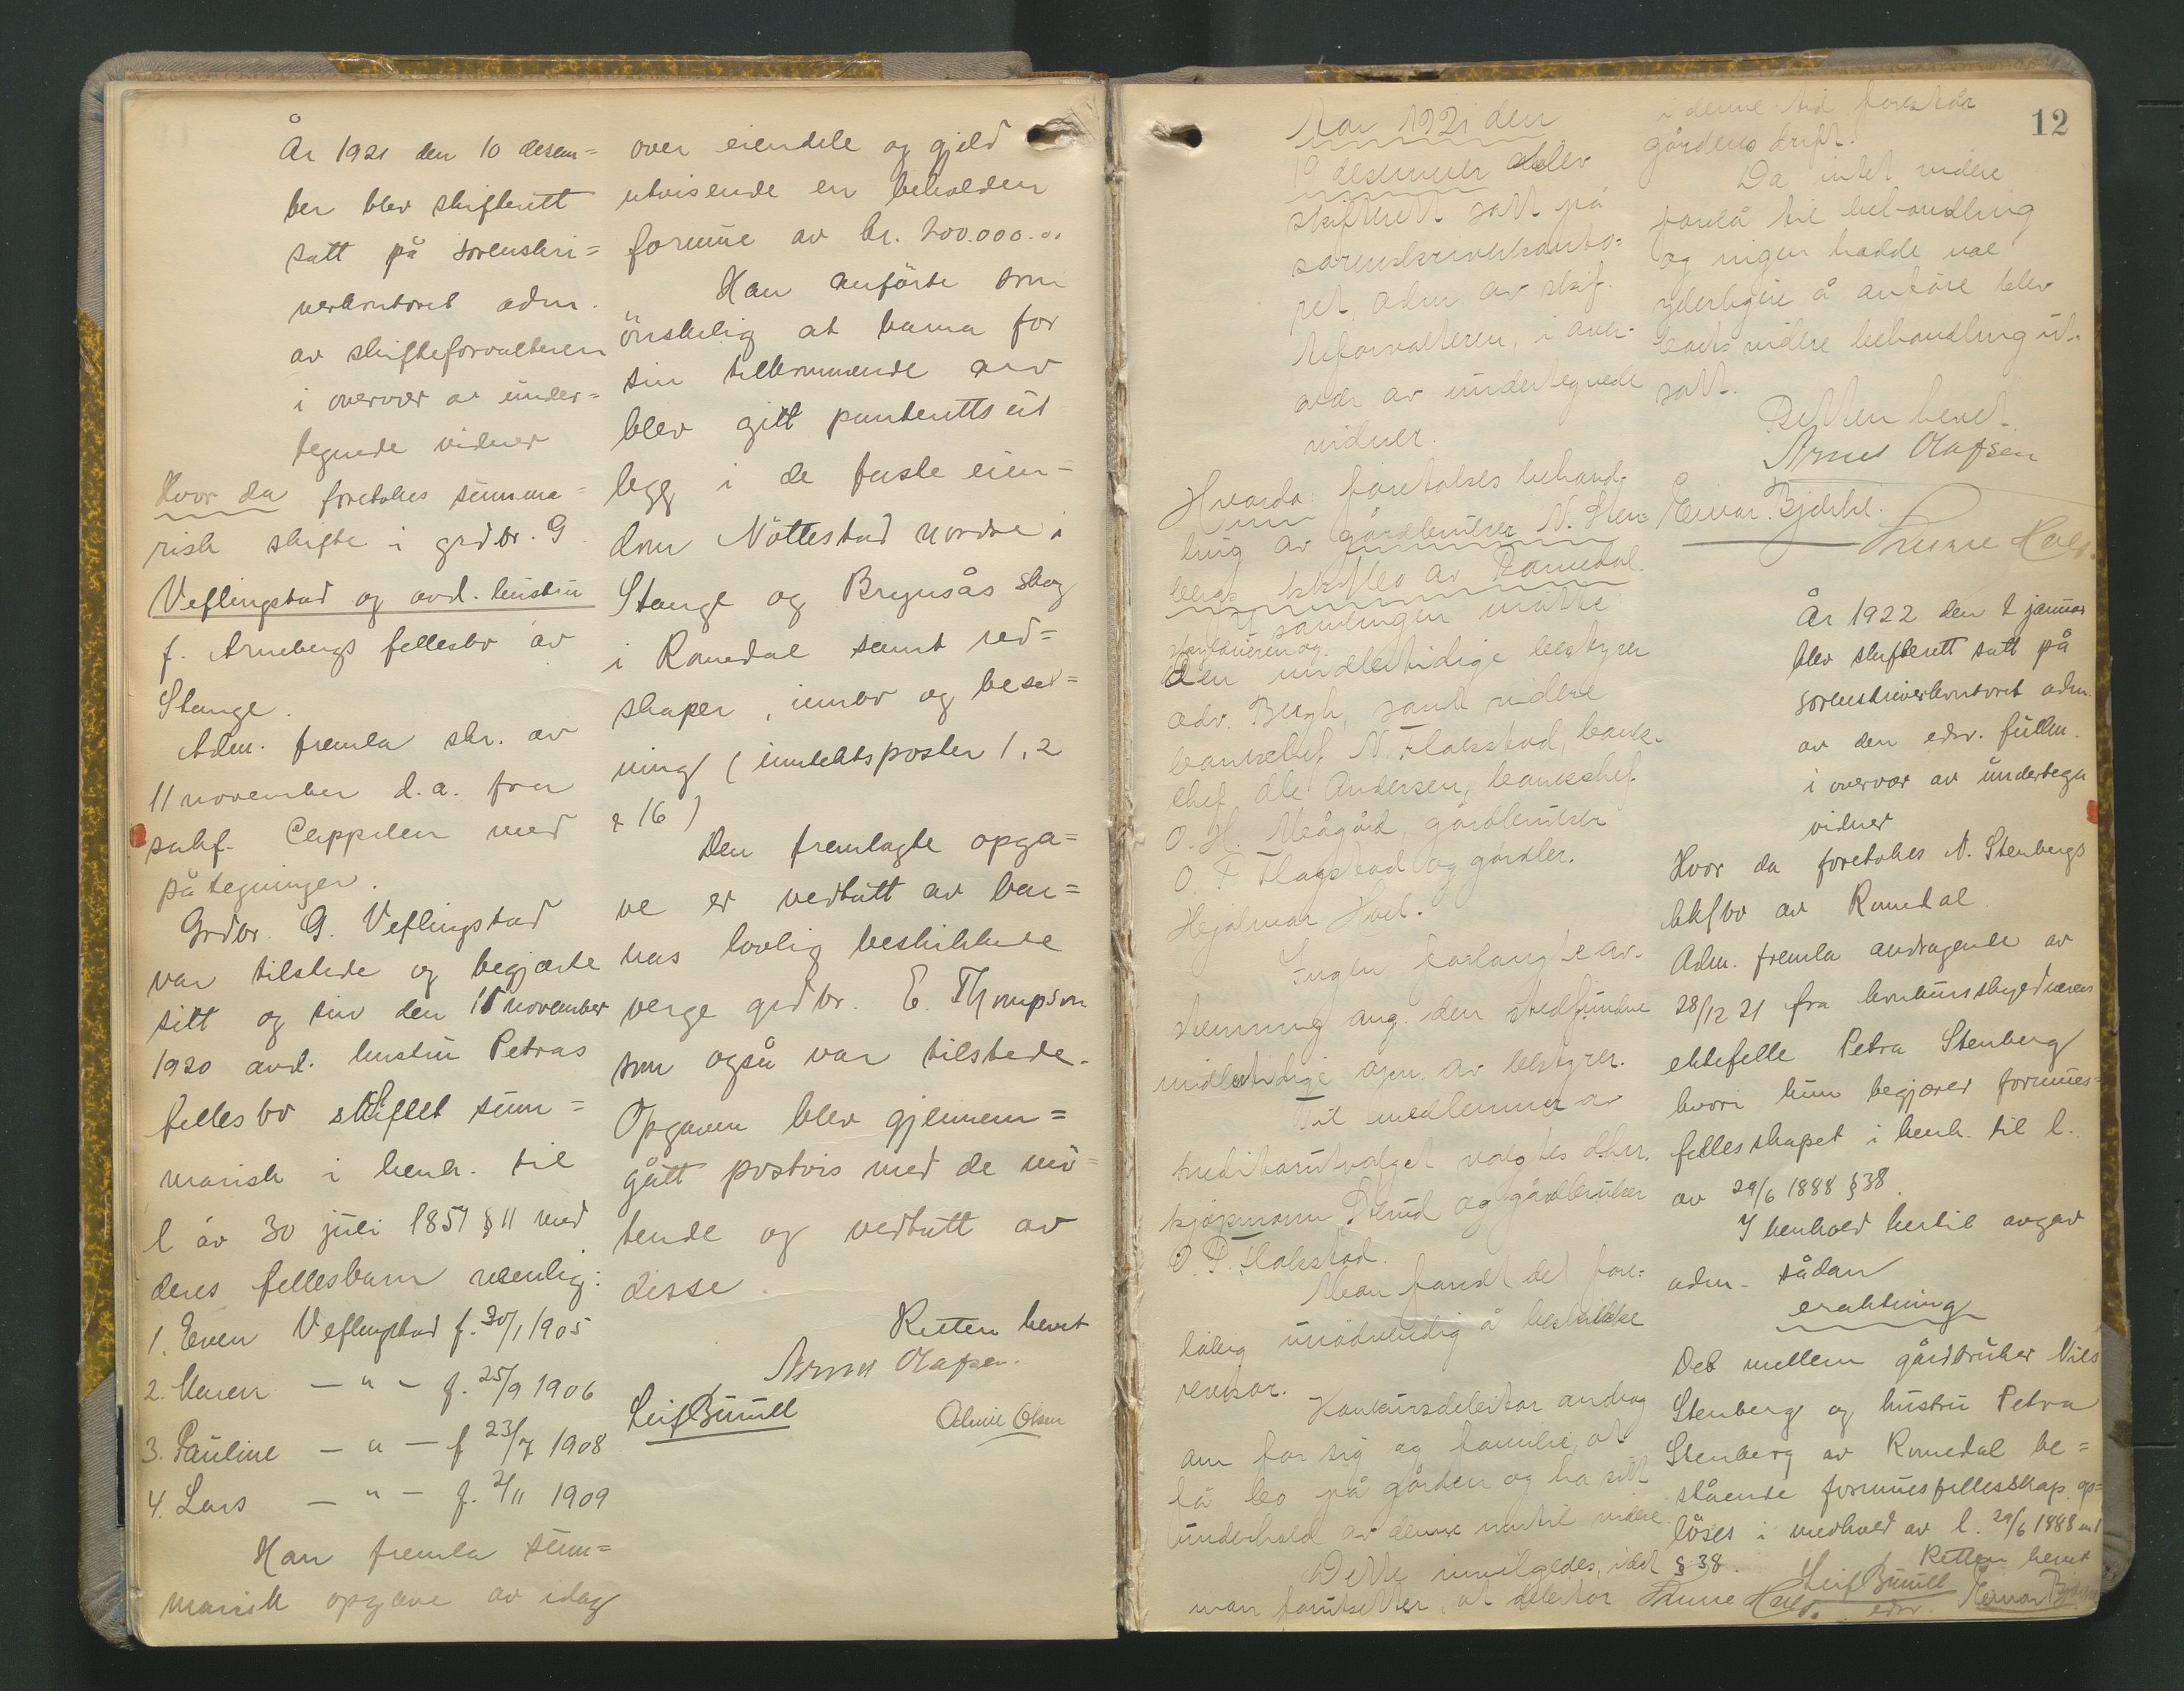 År 1921 den 10 desem=
ber blev skifterett
satt på sorenskri=
verkontoret adm.
av skifteforvalteren
i overvær av under=
tegnede vidner
Hvor da foretokes summa=
risk skifte i grdbr. G
Veflingstad og avd. hustru
f. Arnebergs fellesbo av
Stange.
Adm. fremla skr. av
11 november d.a. fra
sakf. Cappelen med
påtegninger.
Grdbr. G. Veflingstad
var tilstede og begjærte
sitt og sin den 15 november
1920 avd. hustru Petras
fellesbo skiftet sum=
marisk i henh. til
l av 30 juli 1851 § 11 med
deres fellesbarn nemlig:
1. Even Veflingstad f. 30/1 1905
2. Maren — " — f. 25/9 1906
3. Pauline — " — f 23/7 1908
4. Lars — " — f. 2/11 1909
Han fremla sum=
marisk opgave av idag
over eiendele og gjeld
utvisende en beholden
formue av kr. 200.000.00
Han anførte som
ønskelig at barna for
sin tilkommende arv
blev gitt panteretts ut
legg i de faste eien=
dom Nøttestad nordre i
Stange og Brynsås skog
i Romedal samt red=
skaper, innbo og beset=
ning (inntektsposter 1, 2
& 16)
Den fremlagte opga=
ve er vedtatt av bar=
nas lovlig beskikkede
verge grdbr. E. Thompson
som også var tilstede.
Opgaven blev gjennem=
gått postvis med de mø=
tende og vedtatt av
disse.
Retten hevet
Arne Olafsen.
Leif Bunell
Olsen
12
Aar 1921 den
19 desember blev
skifterett satt på
sorenskriverkonto=
ret, adm av skif.
teforvalteren, i over-
vær av undertegnede
vidner.
Hvorda: foretokes behand-
ling av gårdbruker N. Sten-
bergs kkfbo av Romedal.
I samlingen møtte
skyldneren og
den midlertidige bestyrer
adv. Bergh, samt videre
banksjef N. Flakstad, bank-
chef Ole Andersen, bankchef
O. H. Meågård, gårdbruker
O. P. Flagstad og gårdbr.
Hejalmar Hoel.
Ingen forlangte av-
stemning ang. den stedfundne
midlertidige opn. av bestyrer.
Til medlemmer av
kreditorutvalget valgtes d.hrr.
kjøpmann Strud og gårdbruker
O. P. Flakstad.
Man fandt det fore-
løbig unødvendig å beskikke
revisor.
Konkursdebitor androg
om for sig og familie, at
få bo på gården og ha sitt
underhold av denne inntil videre.
Dette innvilgedes, idet
man forutsetter, at debitor
i denne tid forestår
gårdens drift.
Da intet videre
forelå til behandling
og ingen hadde noe
yderligere å anføre blev
boets videre behandling ut-
satt.
Retten hevet.
Arne Olafsen
Einar Bjerke.
År 1922 den 2 januar
blev skifterett satt på
sorenskriverkontoret adm.
av den edsv. fullm.
i overvær av undertegn
vidner
Hvor da foretokes N. Stenbergs
kkfbo av Romedal.
Adm. fremla andragende av
28/12 21 fra konkursskyldnerens
ektefelle Petra Stenberg
hvori hun begjærer formues=
fellesskapet i henh. til l.
av 29/6 1888 § 38.
I henhold hertil avgav
adm. sådan
erakhtning
Det mellem gårdbruker Nils
Stenberg og hustru Petra
Stenberg av Romedal be=
stående formuesfellesskap op=
løses i medhold av l. 29/6 1888
§ 38.
Retten hevet
Leif Bunell
edsv.